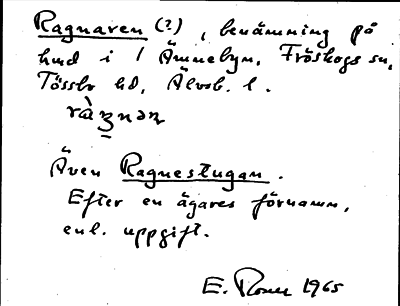 Ragnaren (?), benämning på
hmd i / Ämnebyn, Fröskogs sn,
Tössbo hd, Älvsb. l.
Även Ragnestugan.
Efter en ägares förnamn,
enl. uppgift.
E. 1965